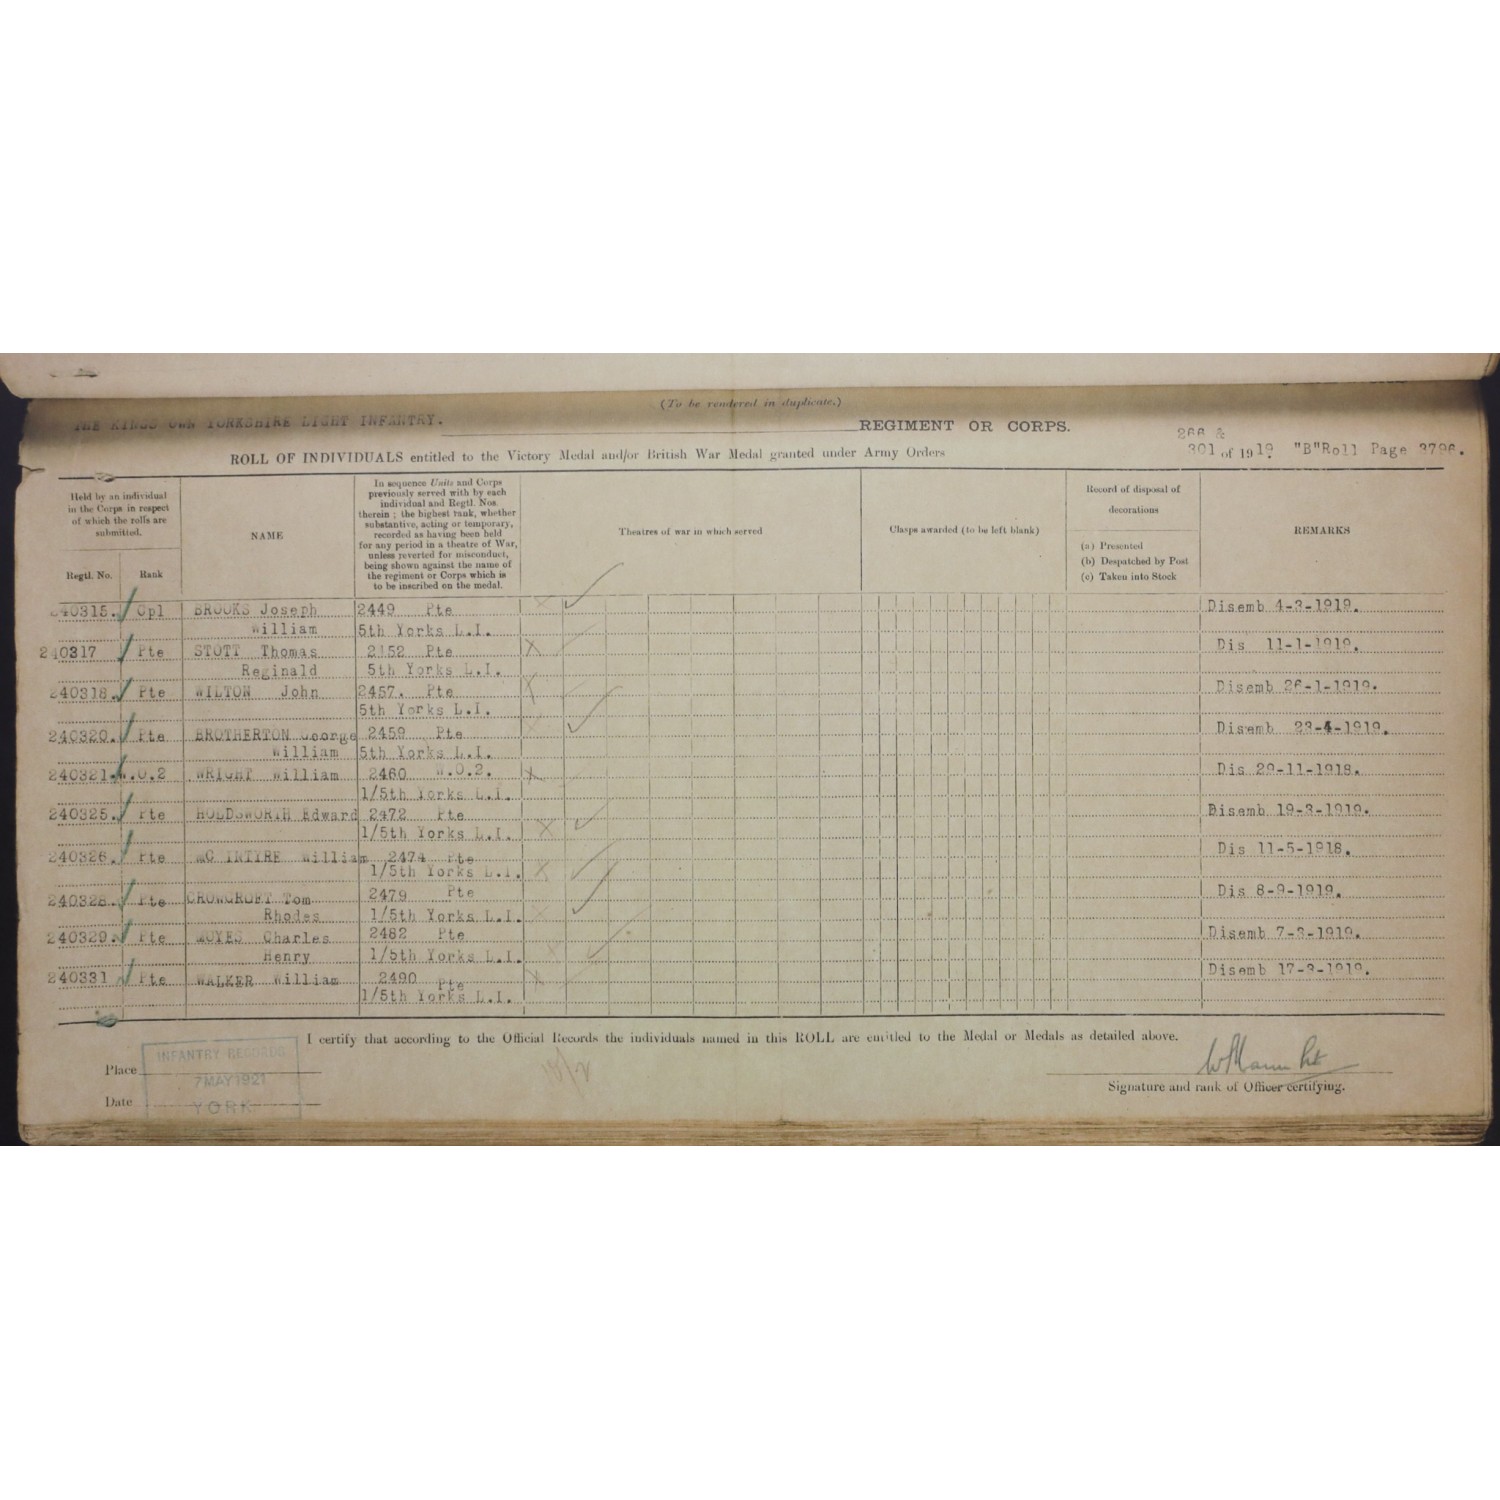 (To be rendered in duplicate.)
THE KINGS OWN YORKSHIRE LIGHT INFANTRY. REGIMENT OR CORPS.
266 &
ROLL OF INDIVIDUALS entitled to the Victory Medal and/or British War Medal granted under Army Orders 301 of 1919 "B"Roll Page 3796.
Held by an individual in the Corps in respect of which the rolls are submitted.
Regtl. No. Rank
NAME
In sequence Units and Corps
previously served with by each
individual and Regtl. Nos.
therein ; the highest rank, whether
substantive, acting or temporary,
recorded as having been held
for any period in a theatre of War,
unless reverted for misconduct,
being shown against the name of
the regiment or Corps which is
to be inscribed on the medal.
Theatres of war in which served
Clasps awarded (to be left blank)
Record of disposal of
decorations
(a) Presented
(b) Despatched by Post
(c) Taken into Stock
REMARKS
240315. Cpl BROOKS Joseph 2449 Pte Disemb 4-3-1919.
William 5th Yorks L.I.
240317 Pte STOTT Thomas 2152 Pte Dis 11-1-1919.
Reginald 5th Yorks L.I.
240318. Pte WILTON John 2457. Pte Disemb 26-1-1919.
5th Yorks L.I.
240320. Pte BROTHERTON George 2459 Pte Disemb 23-4-1919.
William 5th Yorks L.I.
240321. W.O.2 WRIGHT William 2460 W.O.2. Dis 29-11-1918.
1/5th Yorks L.I.
240325. Pte HOLDSWORTH Edward 2472 Pte Disemb 19-3-1919.
1/5th Yorks L.I.
240326. Pte MC INTYRE William 2474 Pte Dis 11-5-1918.
1/5th Yorks L.I.
240328. Pte CROWCROFT Tom 2479 Pte Dis 8-9-1919.
Rhodes 1/5th Yorks L.I.
240329. Pte MOYES Charles 2482 Pte Disemb 7-3-1919.
Henry 1/5th Yorks L.I.
240331 Pte WALKER William 2490 Pte Disemb 17-3-1919.
1/5th Yorks L.I.
I certify that according to the Official Records the individuals named in this ROLL are entitled to the Medal or Medals as detailed above.
INFANTRY RECORDS
Place
7 MAY 1921
Date
YORK
Signature and rank of Officer certifying.